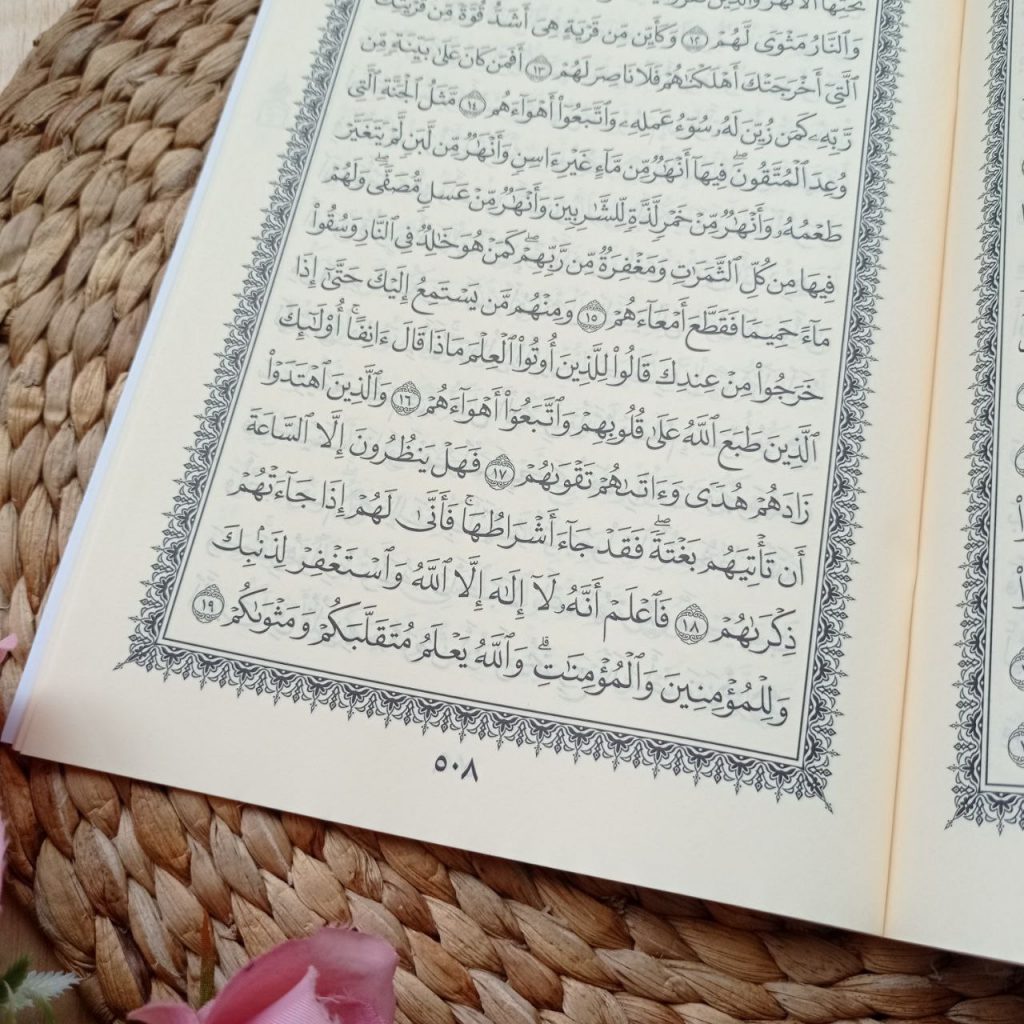 وَٱلنَّارُ مَثۡوٗى لَّهُمۡ ١٢ وَكَأَيِّن مِّن قَرۡيَةٍ هِيَ أَشَدُّ قُوَّةٗ مِّن قَرۡيَتِكَ
ٱلَّتِيٓ أَخۡرَجَتۡكَ أَهۡلَكۡنَٰهُمۡ فَلَا نَاصِرَ لَهُمۡ ١٣ أَفَمَن كَانَ عَلَىٰ بَيِّنَةٖ مِّن
رَّبِّهِۦ كَمَن زُيِّنَ لَهُۥ سُوٓءُ عَمَلِهِۦ وَٱتَّبَعُوٓاْ أَهۡوَآءَهُم ١٤ مَّثَلُ ٱلۡجَنَّةِ ٱلَّتِي
وُعِدَ ٱلۡمُتَّقُونَۖ فِيهَآ أَنۡهَٰرٞ مِّن مَّآءٍ غَيۡرِ ءَاسِنٖ وَأَنۡهَٰرٞ مِّن لَّبَنٖ لَّمۡ يَتَغَيَّرۡ
طَعۡمُهُۥ وَأَنۡهَٰرٞ مِّنۡ خَمۡرٖ لَّذَّةٖ لِّلشَّٰرِبِينَ وَأَنۡهَٰرٞ مِّنۡ عَسَلٖ مُّصَفّٗىۖ وَلَهُمۡ
فِيهَا مِن كُلِّ ٱلثَّمَرَٰتِ وَمَغۡفِرَةٞ مِّن رَّبِّهِمۡۖ كَمَنۡ هُوَ خَٰلِدٞ فِي ٱلنَّارِ وَسُقُواْ
مَآءً حَمِيمٗا فَقَطَّعَ أَمۡعَآءَهُمۡ ١٥ وَمِنۡهُم مَّن يَسۡتَمِعُ إِلَيۡكَ حَتَّىٰٓ إِذَا
خَرَجُواْ مِنۡ عِندِكَ قَالُواْ لِلَّذِينَ أُوتُواْ ٱلۡعِلۡمَ مَاذَا قَالَ ءَانِفًاۚ أُوْلَٰٓئِكَ
ٱلَّذِينَ طَبَعَ ٱللَّهُ عَلَىٰ قُلُوبِهِمۡ وَٱتَّبَعُوٓاْ أَهۡوَآءَهُمۡ ١٦ وَٱلَّذِينَ ٱهۡتَدَوۡاْ
زَادَهُمۡ هُدٗى وَءَاتَىٰهُمۡ تَقۡوَىٰهُمۡ ١٧ فَهَلۡ يَنظُرُونَ إِلَّا ٱلسَّاعَةَ
أَن تَأۡتِيَهُم بَغۡتَةٗۖ فَقَدۡ جَآءَ أَشۡرَاطُهَاۚ فَأَنَّىٰ لَهُمۡ إِذَا جَآءَتۡهُمۡ
ذِكۡرَىٰهُمۡ ١٨ فَٱعۡلَمۡ أَنَّهُۥ لَآ إِلَٰهَ إِلَّا ٱللَّهُ وَٱسۡتَغۡفِرۡ لِذَنۢبِكَ
وَلِلۡمُؤۡمِنِينَ وَٱلۡمُؤۡمِنَٰتِۗ وَٱللَّهُ يَعۡلَمُ مُتَقَلَّبَكُمۡ وَمَثۡوَىٰكُمۡ ١٩
٥٠٨